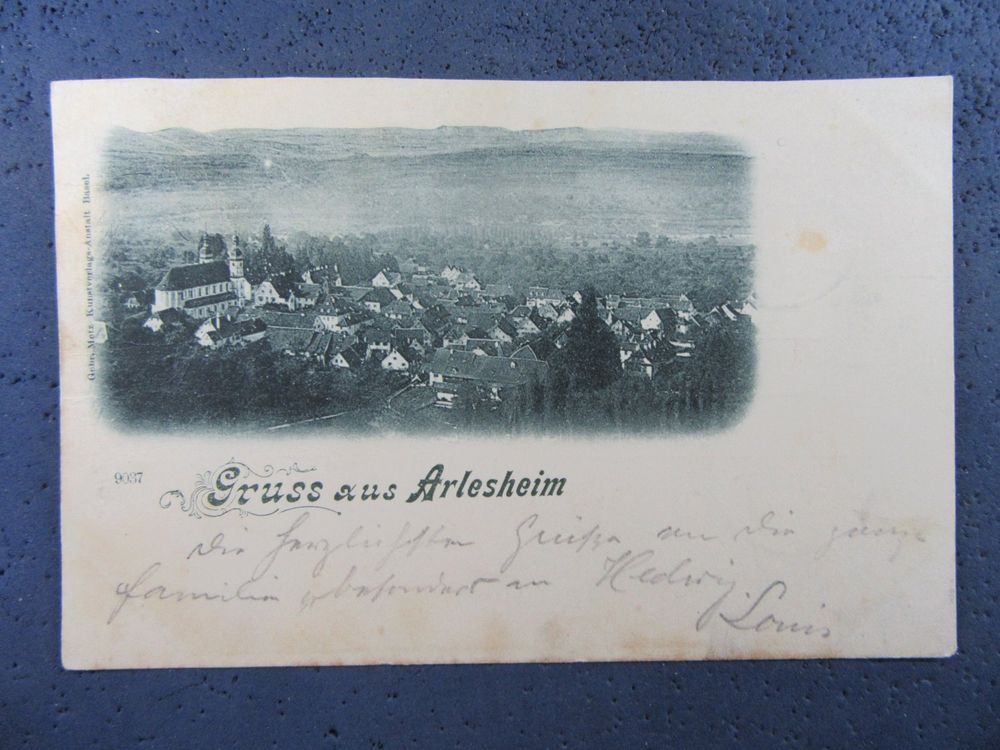 Gebr. Metz Kunstverlags-Anstalt Basel.
9037
Gruss aus Arlesheim
die herzlichsten Grüße an die ganze
familie & besonders an Hedwig
Louis